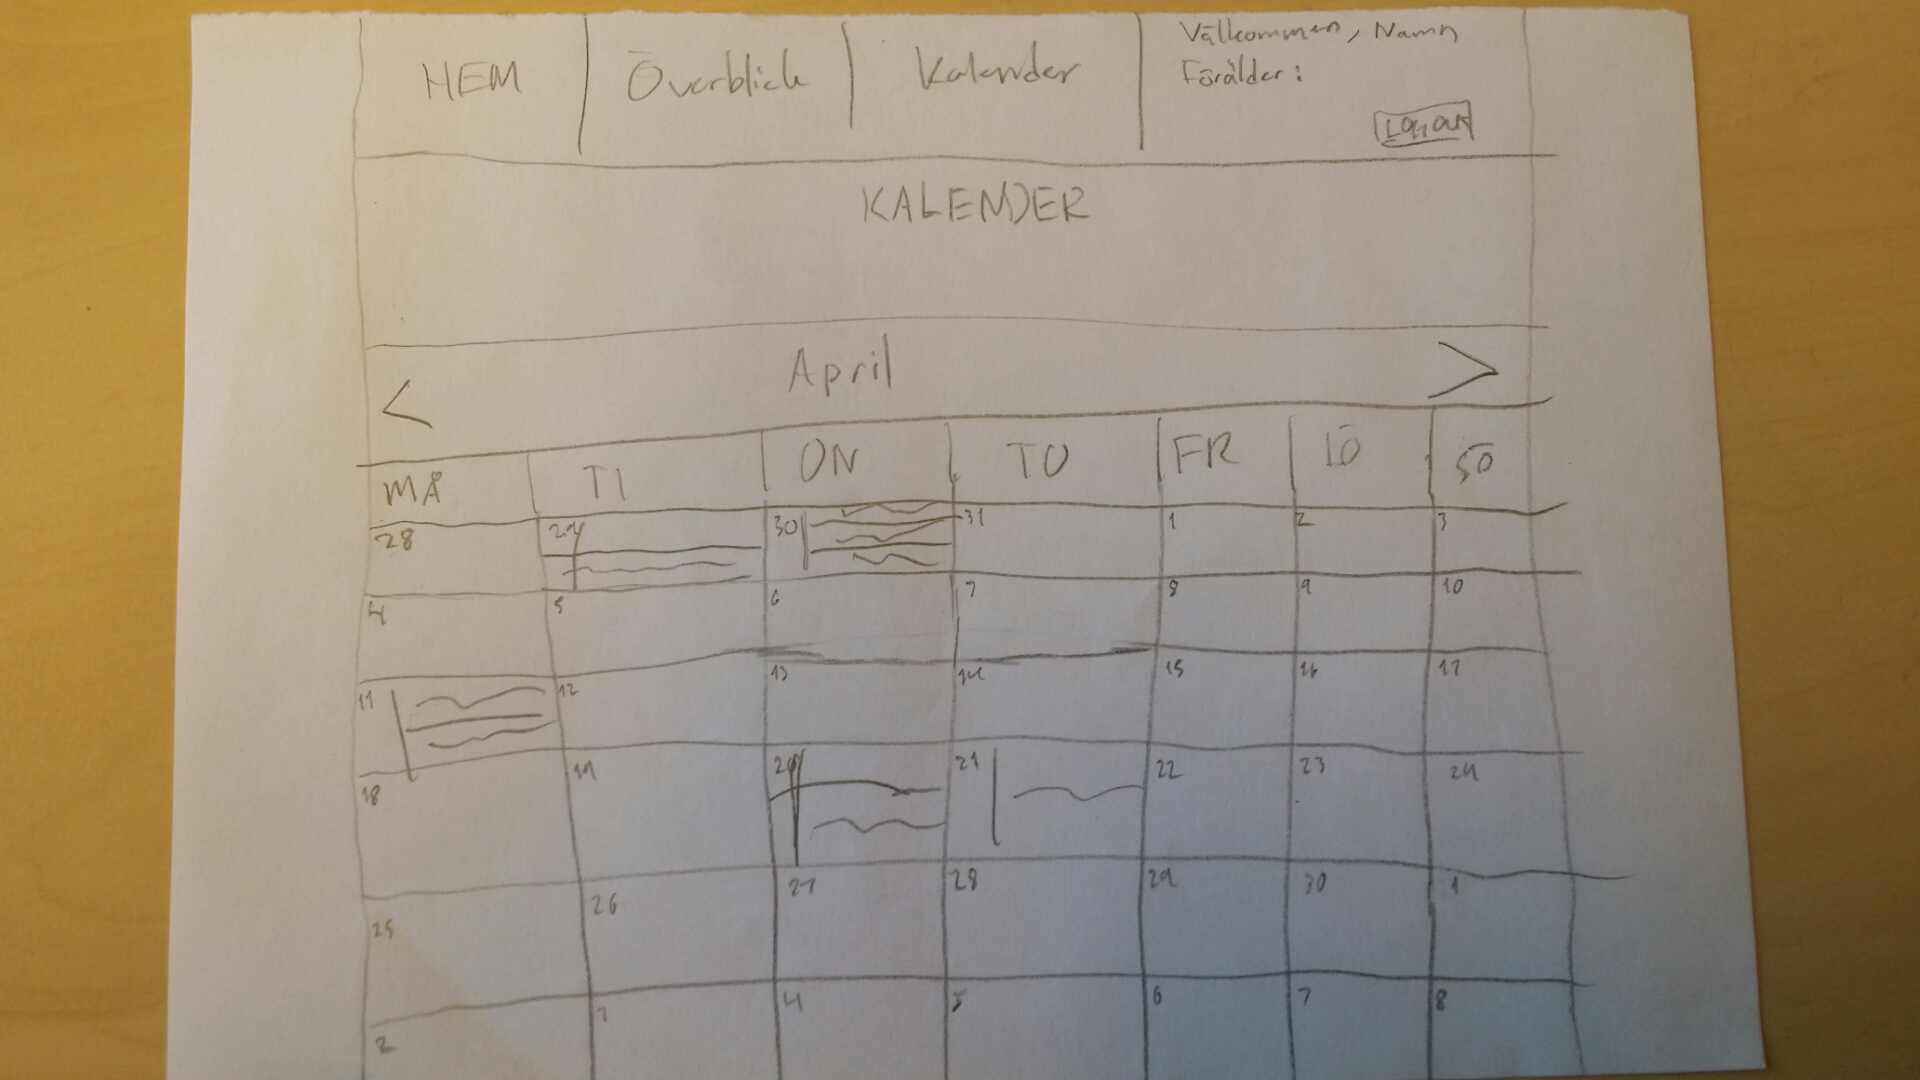 HEM Överblick Kalender Välkommen, Namn
Förälder:
KALENDER
< April >
MÅ TI ON TO FR LÖ SÖ
28 29 30 31 1 2 3
4 5 6 7 8 9 10
11 12 13 14 15 16 17
18 19 20 21 22 23 24
25 26 27 28 29 30 1
2 3 4 5 6 7 8